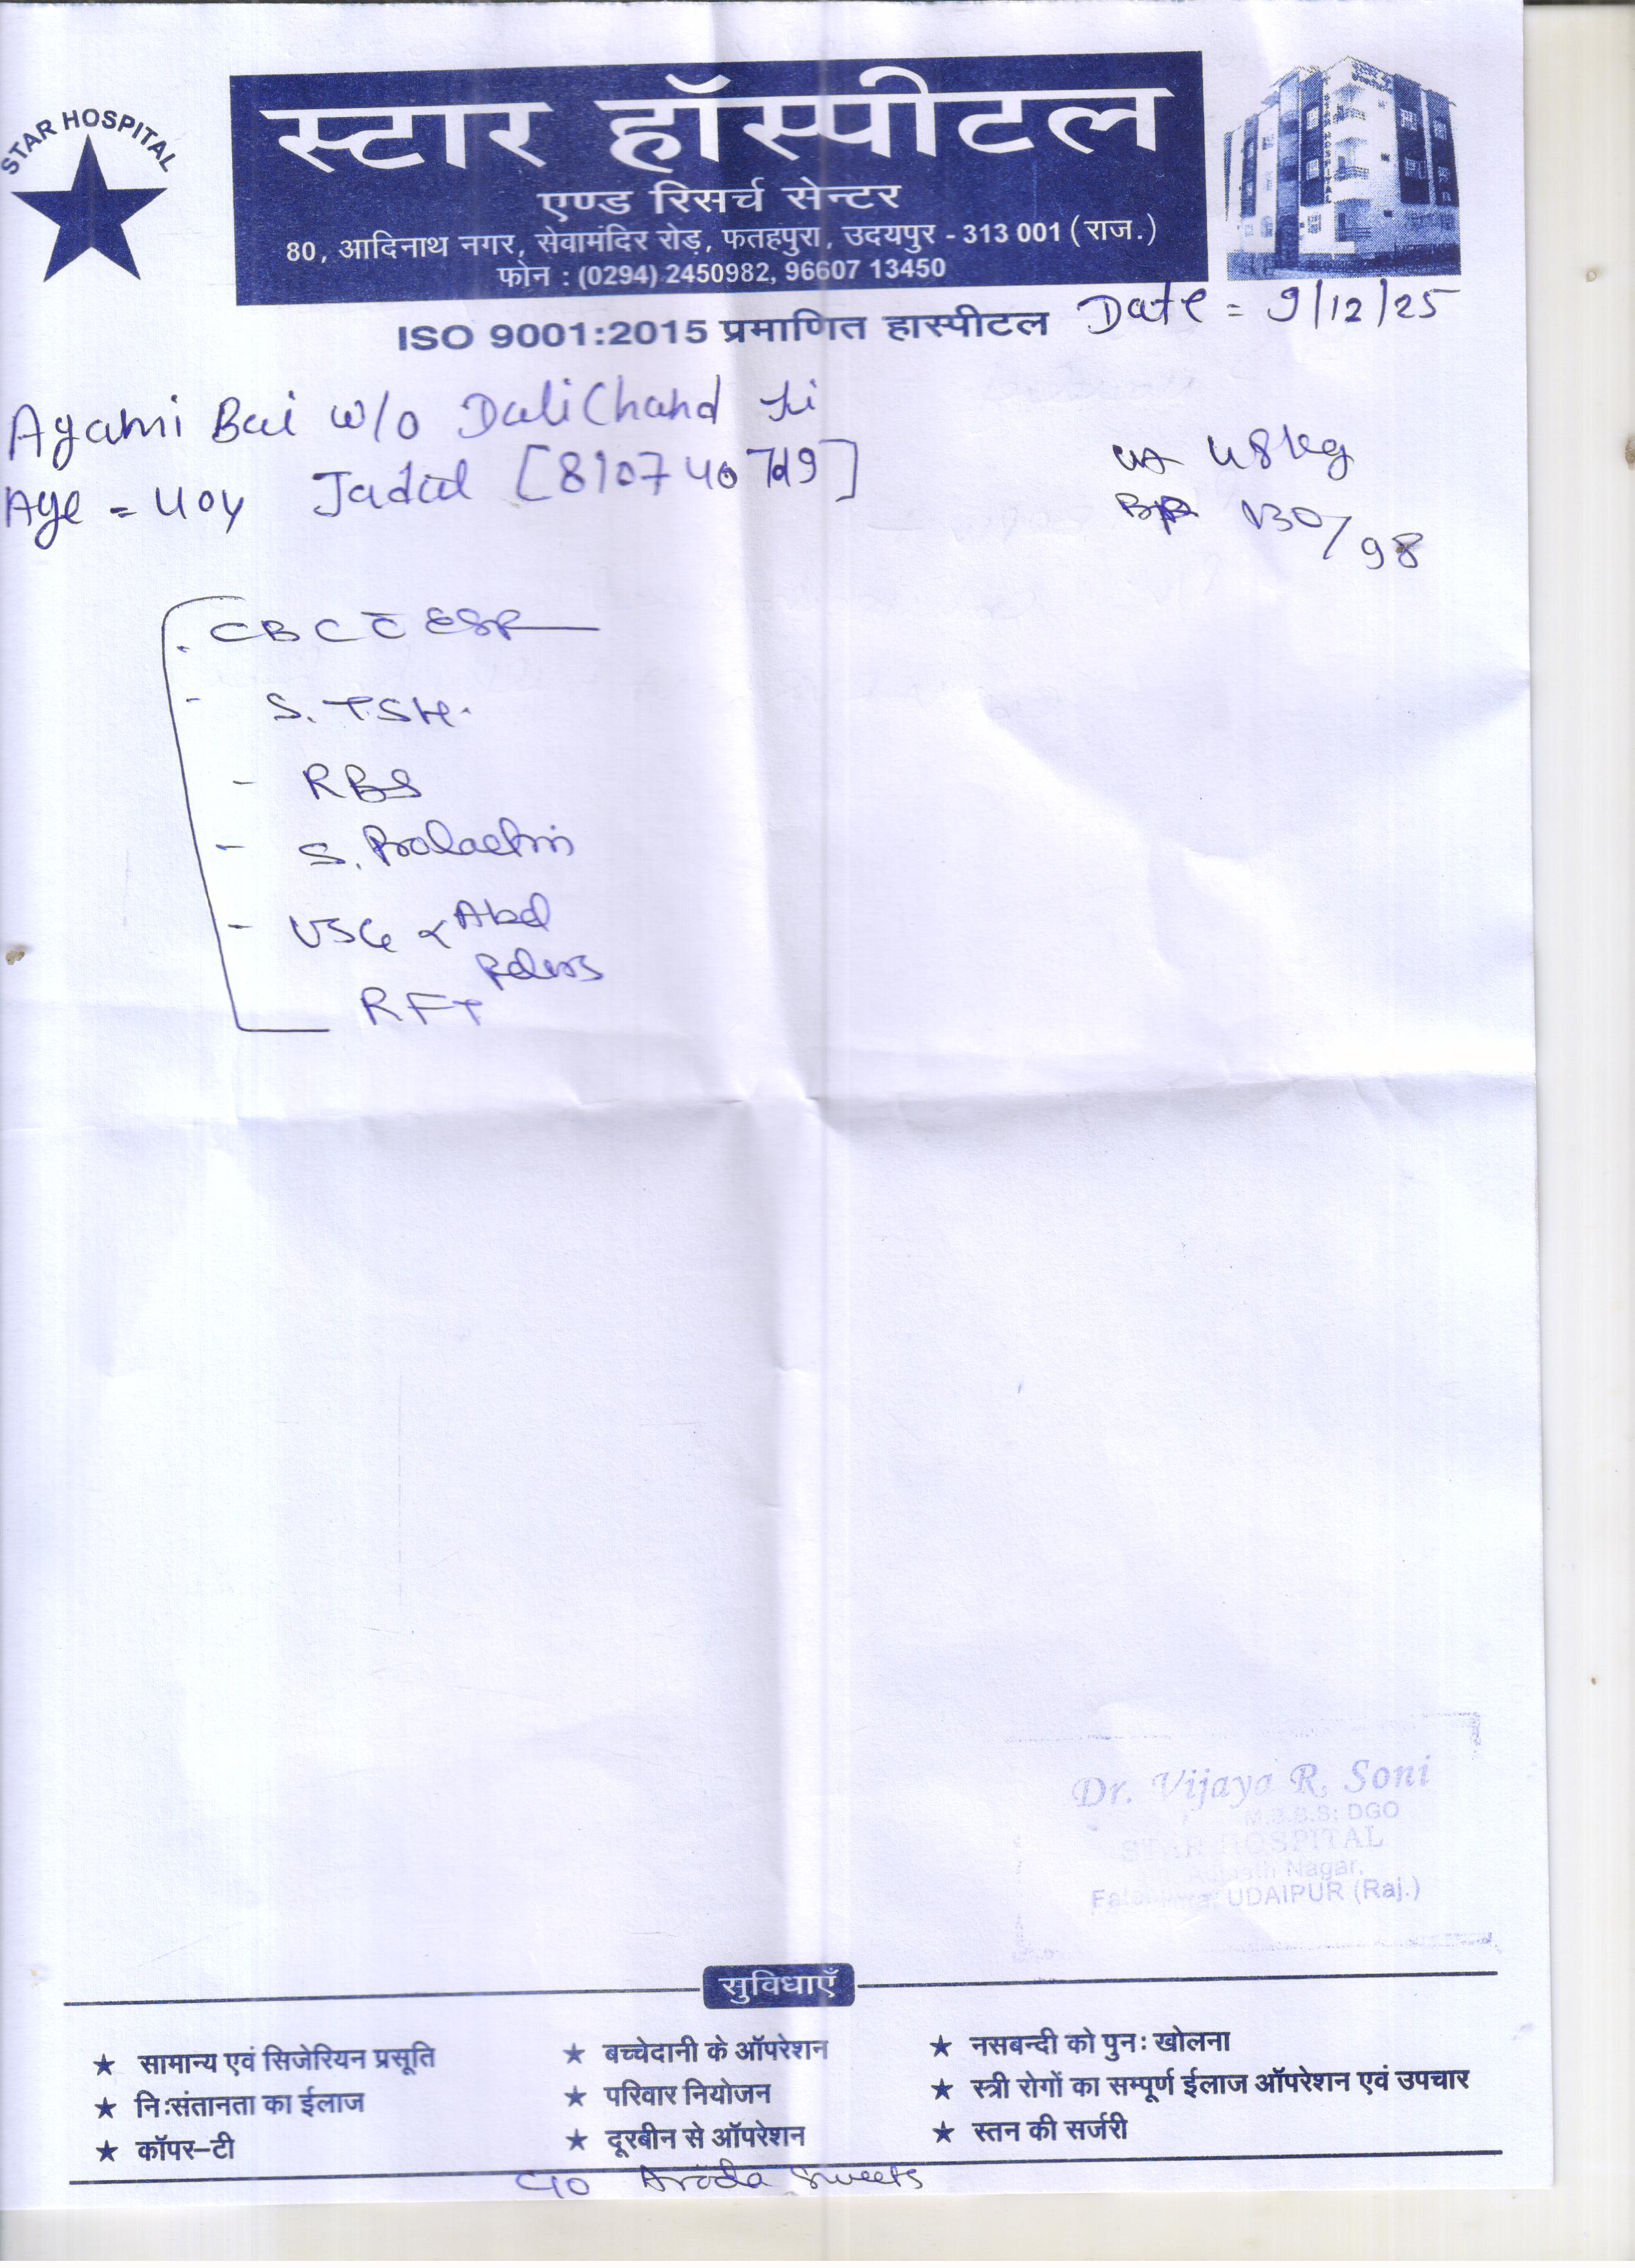 STAR HOSPITAL
स्टार हॉस्पीटल
एण्ड रिसर्च सेन्टर
80, आदिनाथ नगर, सेवामंदिर रोड़, फतहपुरा, उदयपुर - 313 001 (राज.)
फोन : (0294) 2450982, 96607 13450
ISO 9001:2015 प्रमाणित हास्पीटल
Date = 9/12/25
Ayami Bai w/o DaliChand Ji
Age = 40y
wt 48kg
BP 130/98
CBC C̅ ESR
- S. TSH.
- RBS
- S. Prolactin
- USG Abd
Pelvis
RFT
Dr. Vijaya R. Soni
M.B.B.S: DGO
STAR HOSPITAL
Nagar,
UDAIPUR (Raj.)
सुविधाएँ
★ सामान्य एवं सिजेरियन प्रसूति ★ बच्चेदानी के ऑपरेशन ★ नसबन्दी को पुनः खोलना
★ निःसंतानता का ईलाज ★ परिवार नियोजन ★ स्त्री रोगों का सम्पूर्ण ईलाज ऑपरेशन एवं उपचार
★ कॉपर-टी ★ दूरबीन से ऑपरेशन ★ स्तन की सर्जरी
Sweets